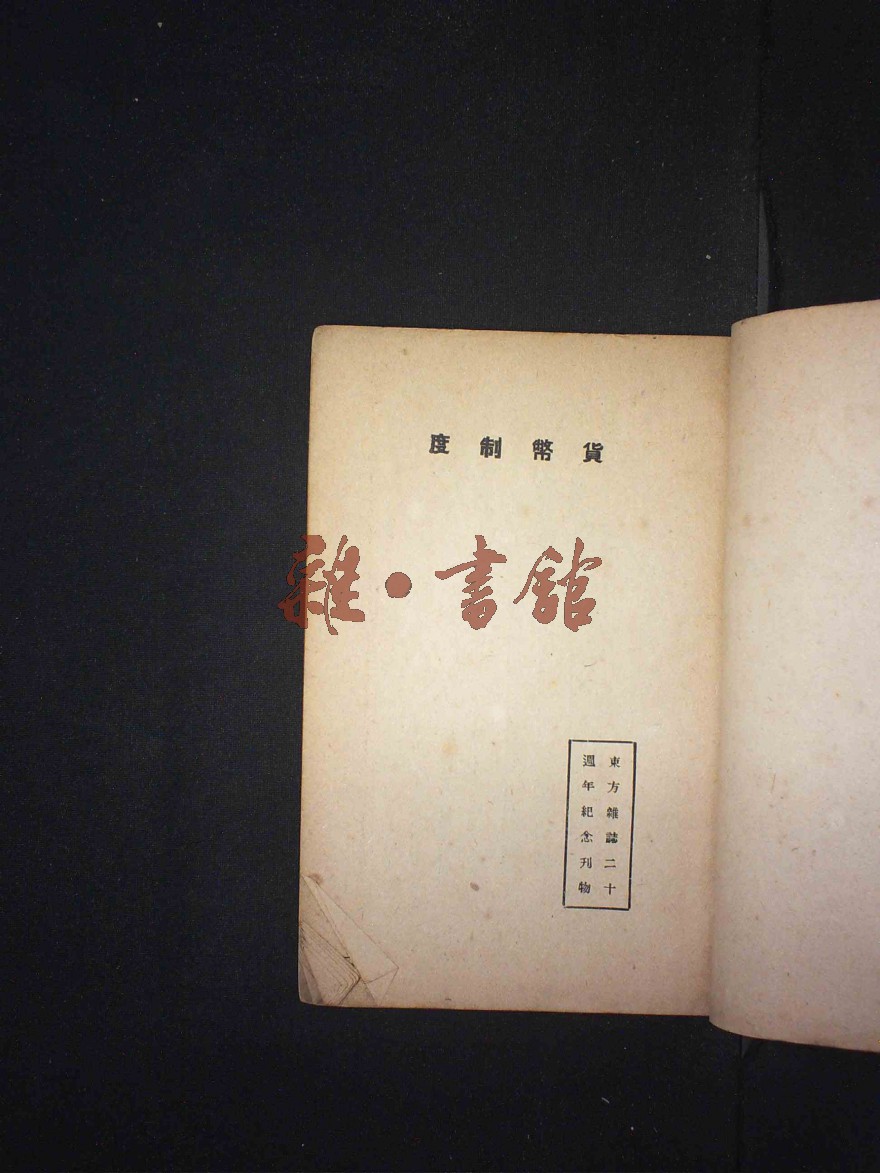 貨幣制度
雜·書館
東方雜誌二十
週年紀念刊物